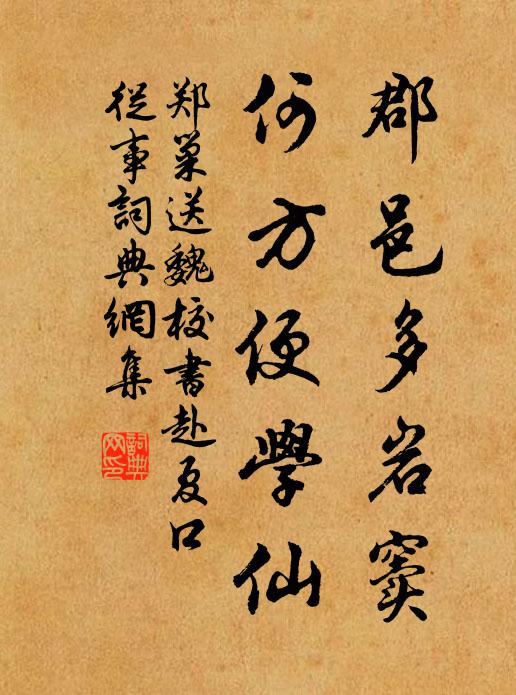 郡邑多岩窦
何方便學仙
郑巢送魏校書赴夏口
從事詞典網集
詞典网印